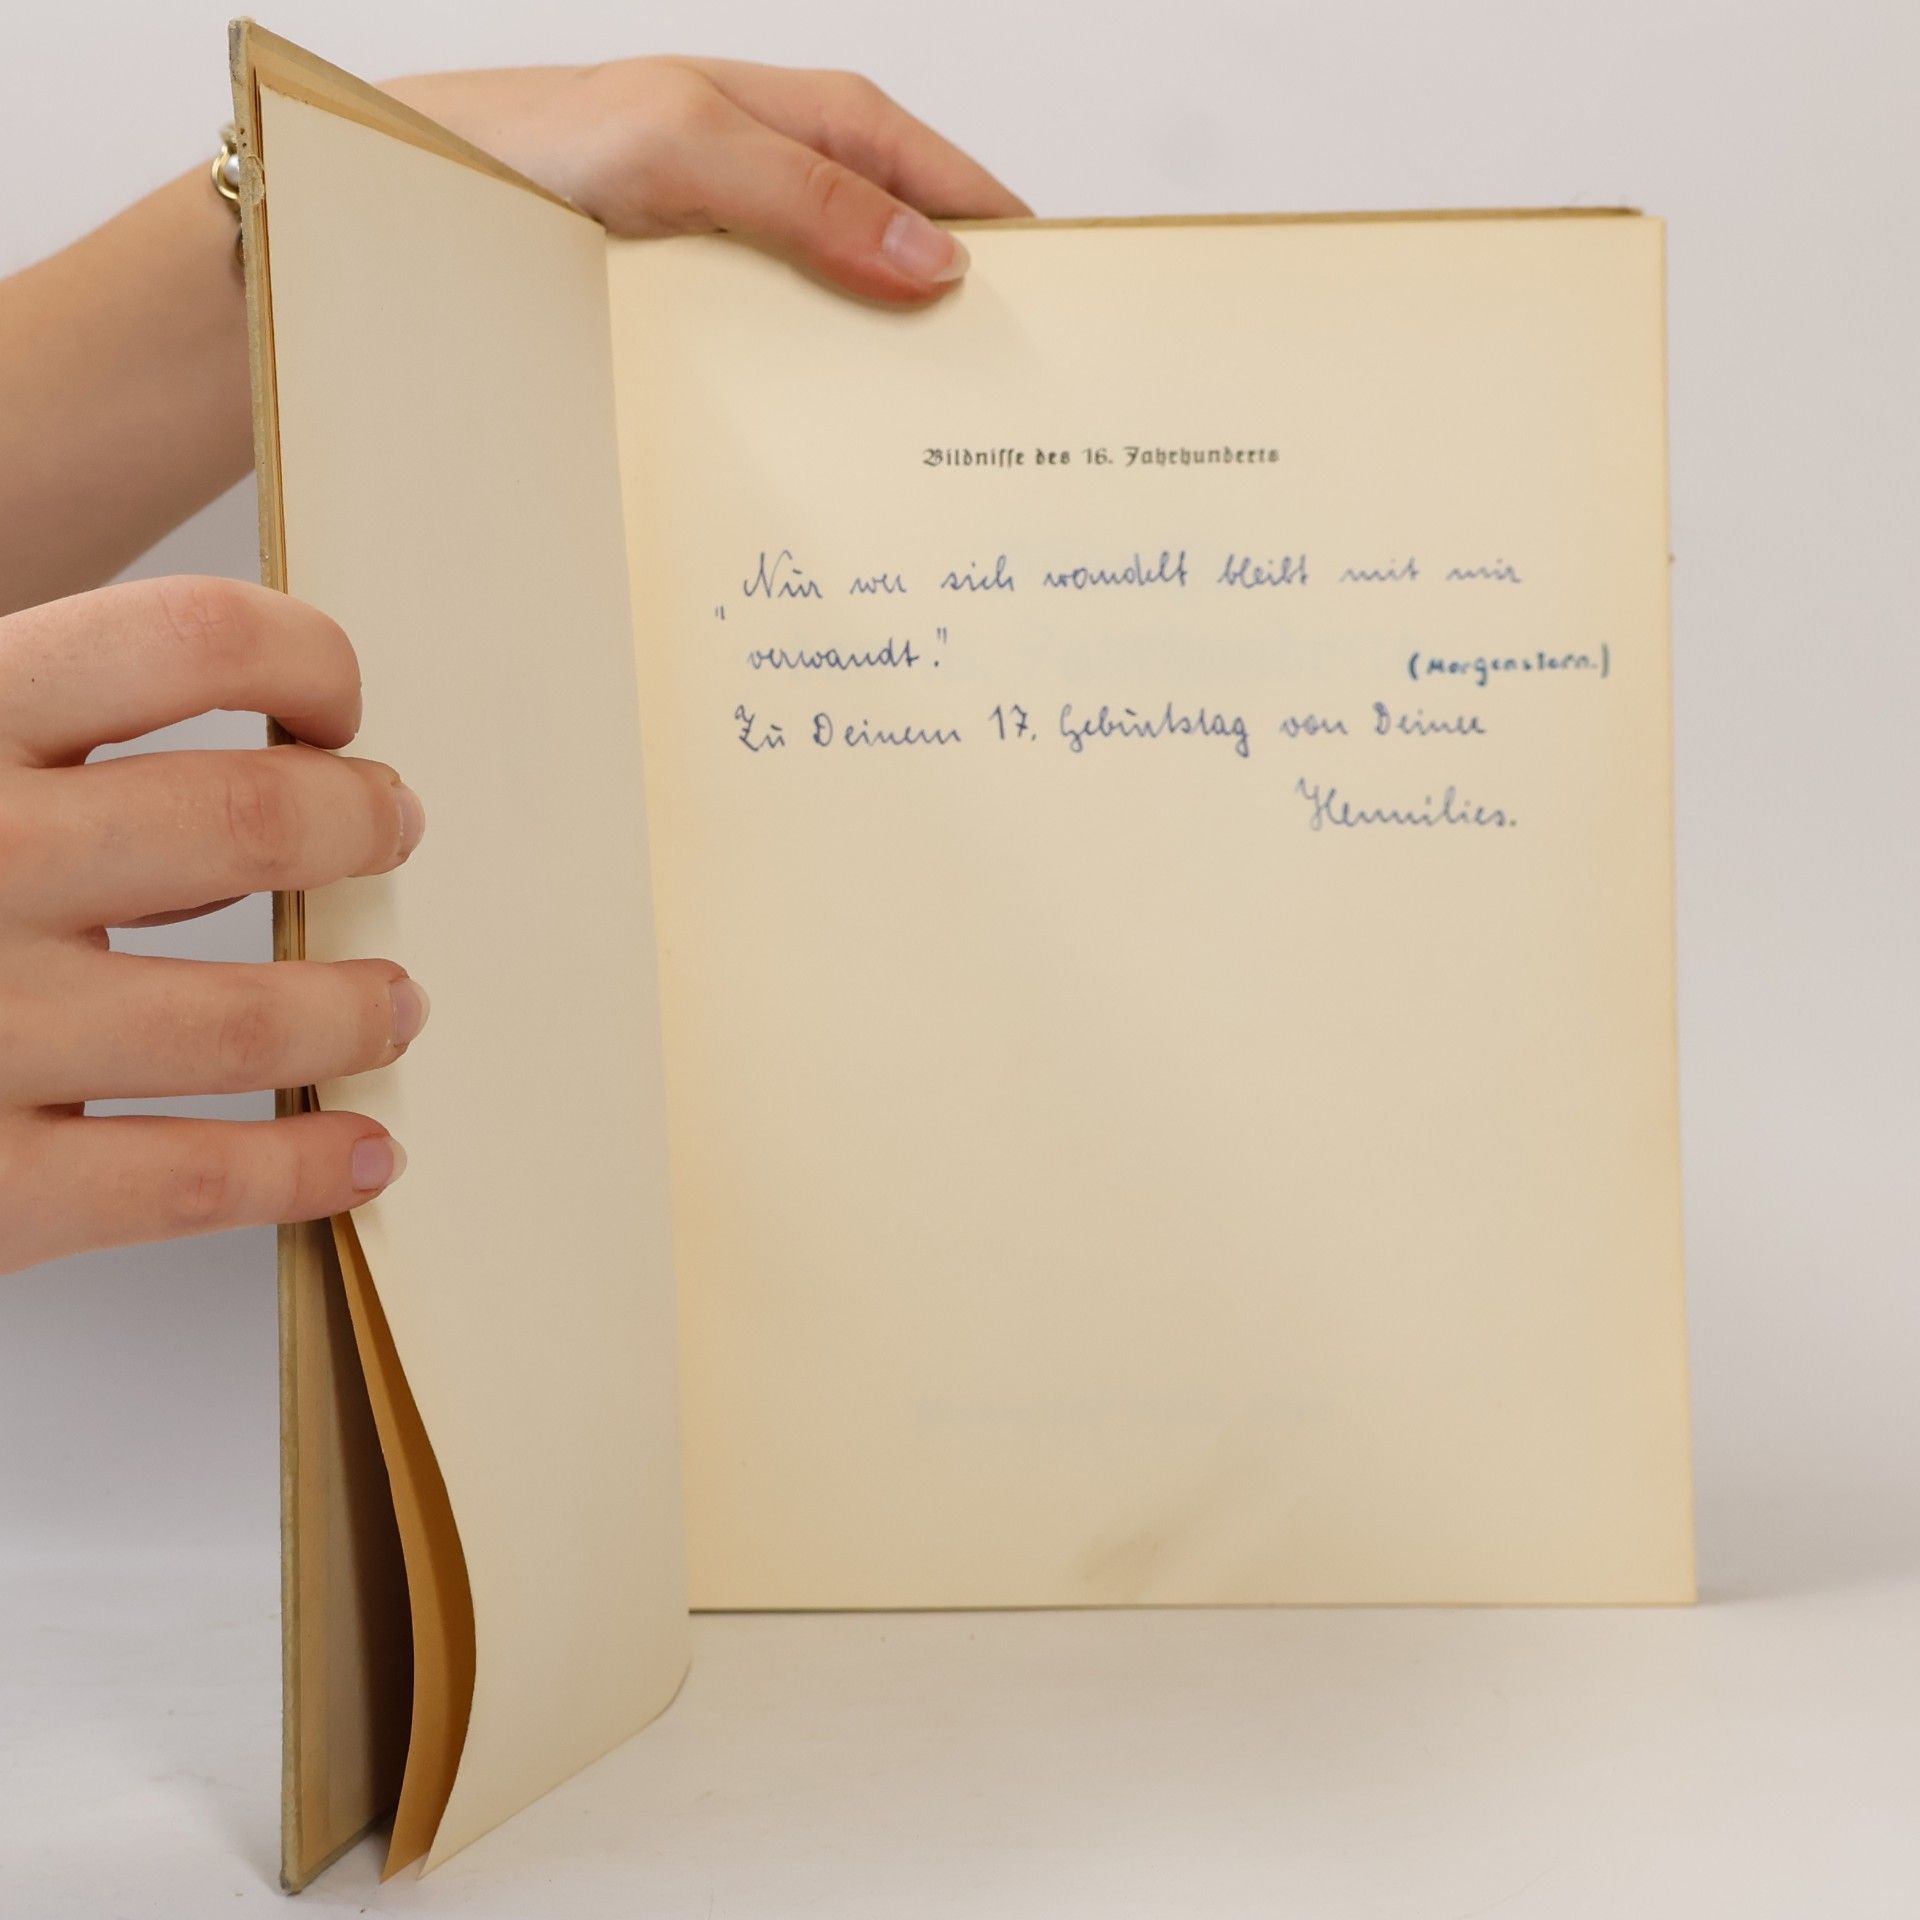 Bildnisse des 16. Jahrhunderts
"Nur wer sich wandelt bleibt mit mir
verwandt."
(Morgenstern.)
Zu Deinem 17. Geburtstag von Deiner